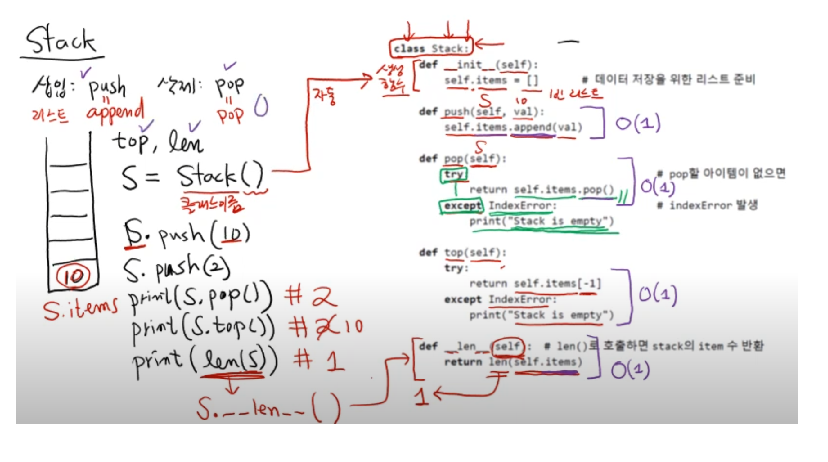 Stack
삽입: push 삭제: pop
리스트 append pop
O
top, len
S = Stack()
클래스이름
S. push(10)
S. push(2)
10
S.items
print(S.pop()) # 2
print(S.top()) # 2 10
print(len(S)) # 1
S.__len__()
자동
생성
함수
class Stack:
def __init__(self):
self.items = [] # 데이터 저장을 위한 리스트 준비
S 10 리스트
def push(self, val):
self.items.append(val)
O(1)
S
def pop(self):
try: # pop할 아이템이 없으면
return self.items.pop() O(1)
except IndexError: # indexError 발생
print("Stack is empty")
def top(self):
try:
return self.items[-1]
except IndexError: O(1)
print("Stack is empty")
def __len__(self): # len()로 호출하면 stack의 item 수 반환
return len(self.items)
O(1)
1